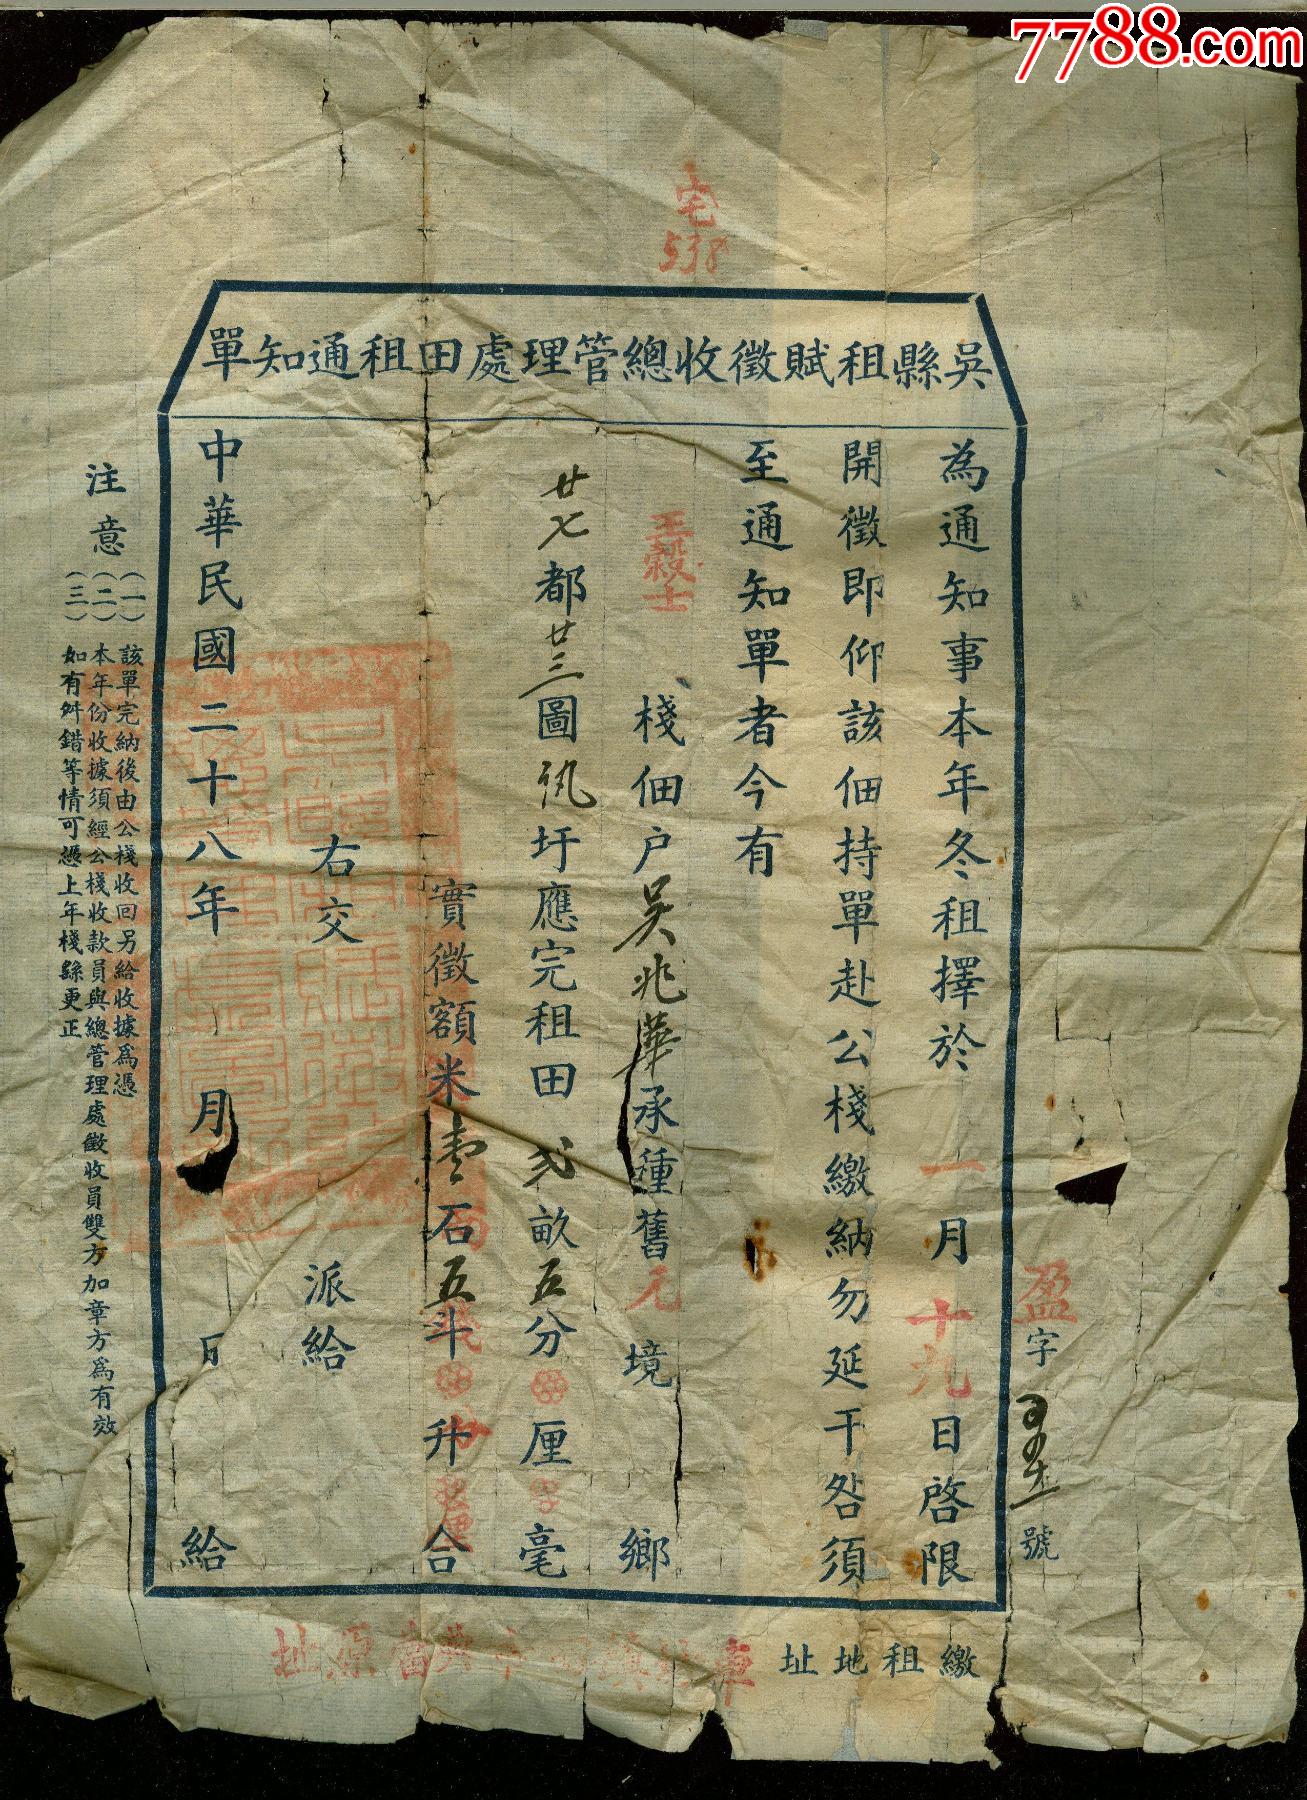 7788.com
宅
538
吳縣租賦徵收總管理處田租通知單
為通知事本年冬租擇於一月十九日啓限
開徵即仰該佃持單赴公棧繳納勿延干咎須
至通知單者今有
王穀士棧佃户吳兆華承種舊元境鄉
廿七都廿三圖圩應完租田弍畝五分厘毫
實徵額米壹石五斗升合
右交派給
中華民國二十八年月日給
盈字號
注意
(一)該單完納後由公棧收回另給收據為憑
(二)本年份收據須經公棧收款員與總管理處徵收員雙方加章方為有效
(三)如有舛錯等情可憑上年棧繇更正
繳租地址
當原址